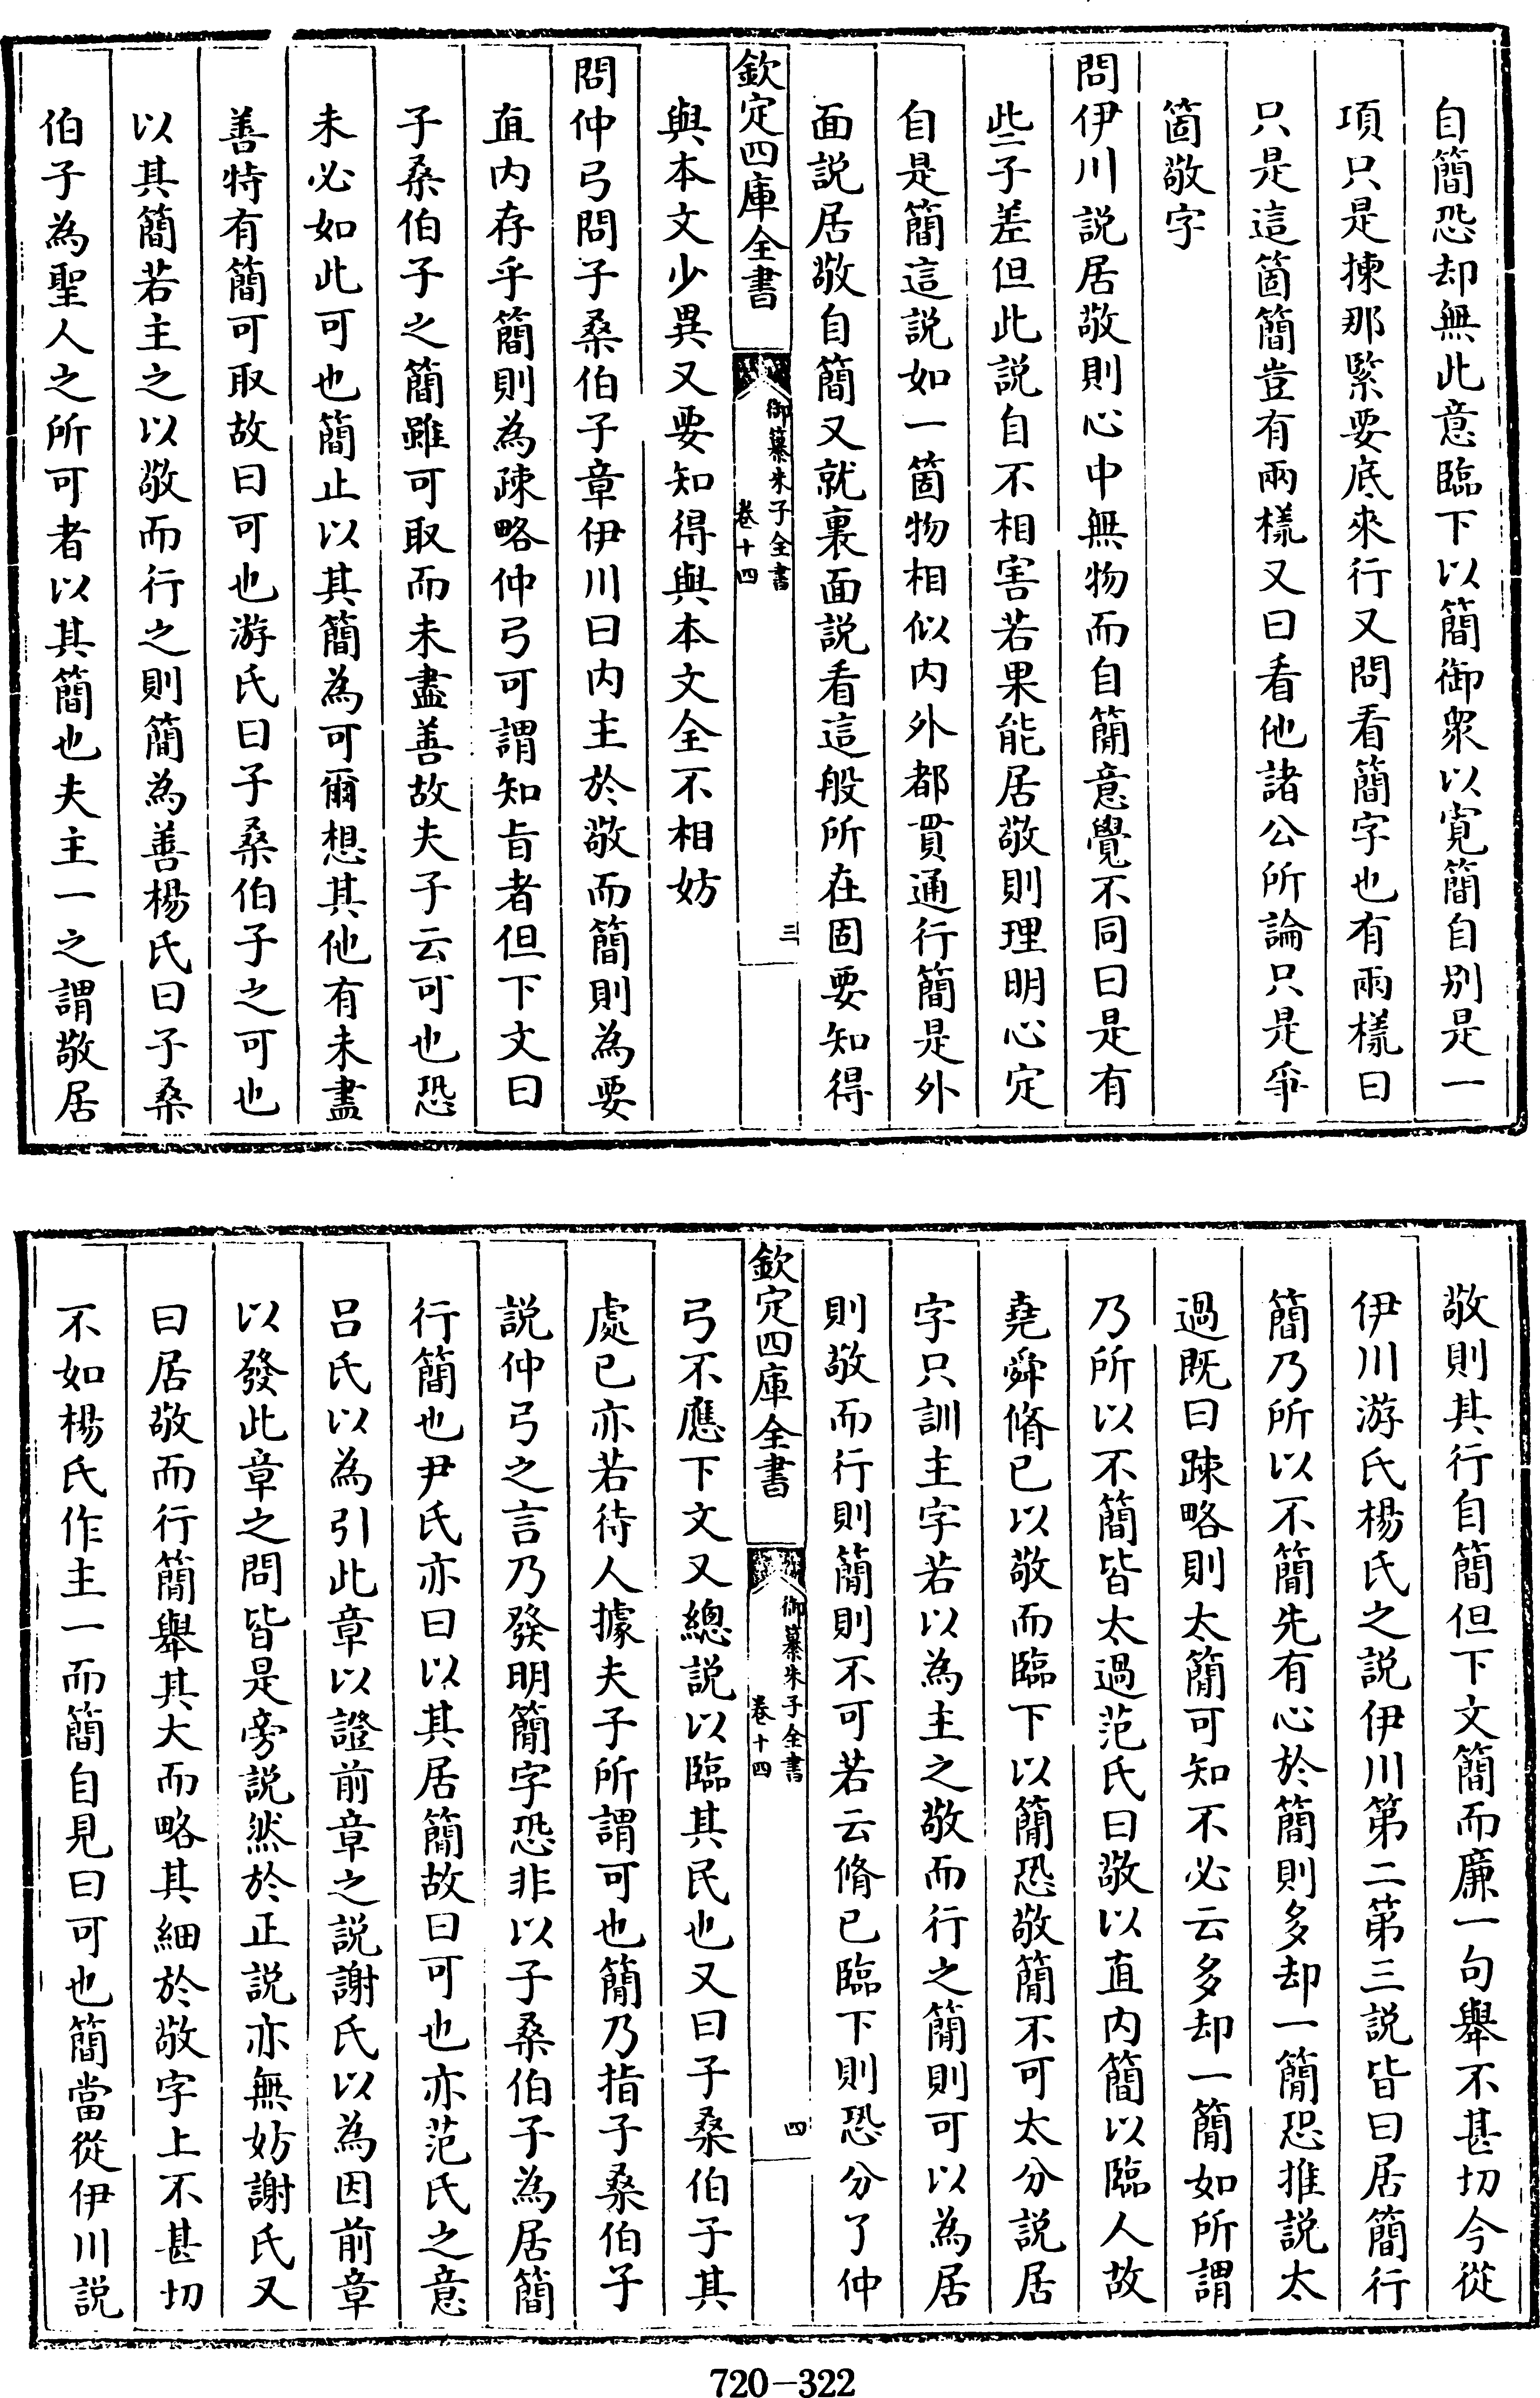 自簡恐却無此意臨下以簡御衆以寛簡自别是一
項只是揀那緊要底來行又問看簡字也有兩樣曰
只是這箇簡豈有兩樣又曰看他諸公所論只是爭
箇敬字
問伊川説居敬則心中無物而自簡意覺不同曰是有
些子差但此説自不相害若果能居敬則理明心定
自是簡這説如一箇物相似内外都貫通行簡是外
面説居敬自簡又就裏面説看這般所在固要知得
欽定四庫全書
御纂朱子全書
卷十四
三
與本文少異又要知得與本文全不相妨
問仲弓問子桑伯子章伊川曰内主於敬而簡則為要
直内存乎簡則為疎略仲弓可謂知旨者但下文曰
子桑伯子之簡雖可取而未盡善故夫子云可也恐
未必如此可也簡止以其簡為可爾想其他有未盡
善特有簡可取故曰可也游氏曰子桑伯子之可也
以其簡若主之以敬而行之則簡為善楊氏曰子桑
伯子為聖人之所可者以其簡也夫主一之謂敬居
敬則其行自簡但下文簡而廉一句舉不甚切今從
伊川游氏楊氏之説伊川第二第三説皆曰居簡行
簡乃所以不簡先有心於簡則多却一簡恐推説太
過既曰疎略則太簡可知不必云多却一簡如所謂
乃所以不簡皆太過范氏曰敬以直内簡以臨人故
堯舜脩已以敬而臨下以簡恐敬簡不可太分説居
字只訓主字若以為主之敬而行之簡則可以為居
則敬而行則簡則不可若云脩已臨下則恐分了仲
欽定四庫全書
御纂朱子全書
卷十四
四
弓不應下文又總説以臨其民也又曰子桑伯子其
處已亦若待人據夫子所謂可也簡乃指子桑伯子
説仲弓之言乃發明簡字恐非以子桑伯子為居簡
行簡也尹氏亦曰以其居簡故曰可也亦范氏之意
吕氏以為引此章以證前章之説謝氏以為因前章
以發此章之問皆是旁説然於正説亦無妨謝氏又
曰居敬而行簡舉其大而略其細於敬字上不甚切
不如楊氏作主一而簡自見曰可也簡當從伊川説
720-322